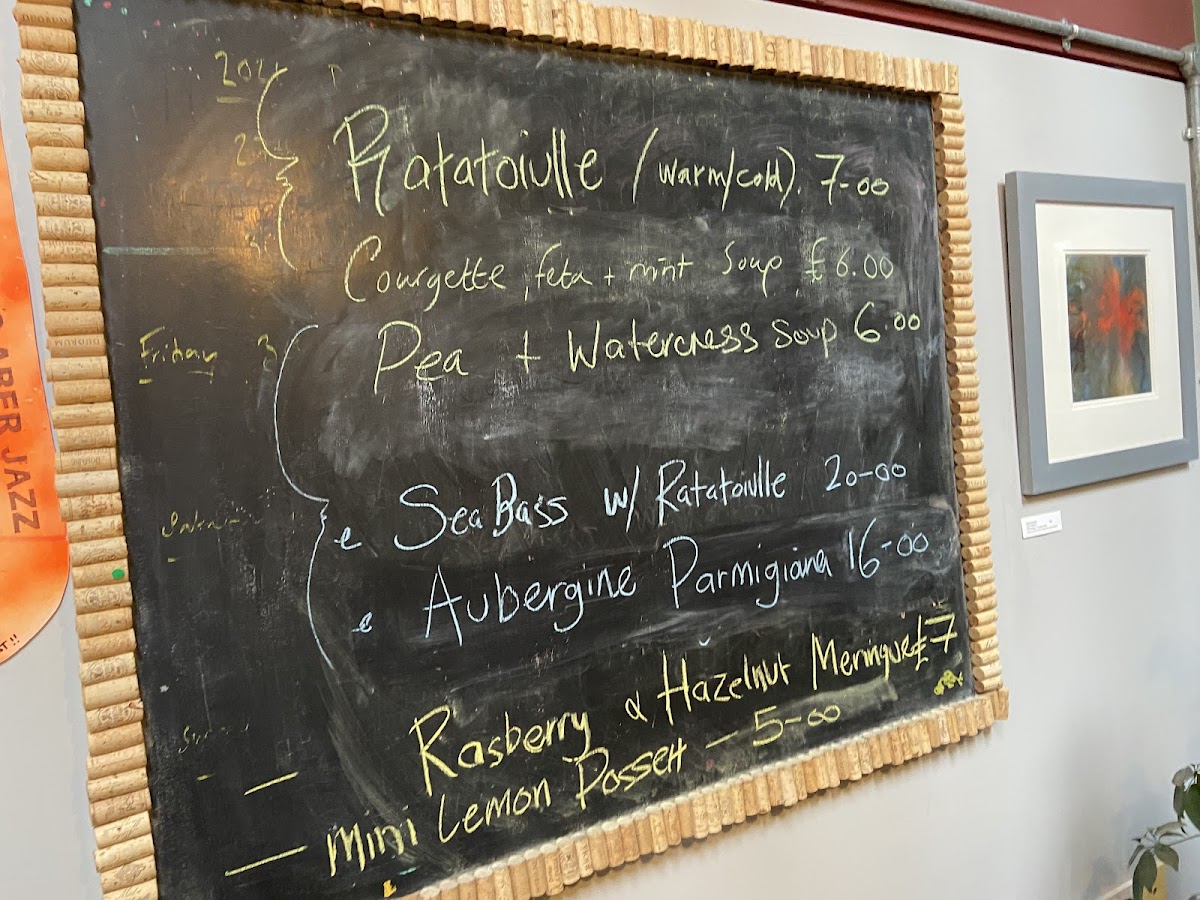 Ratatoiulle / (warm/cold). 7-00
Courgette, feta + mint Soup £6.00
Friday
Pea + Watercress Soup 6.00
Sea Bass w/ Ratatoiulle 20-00
Aubergine Parmigiana 16-00
Rasberry & Hazelnut Meringue £7
— Mini Lemon Possett — 5-00
JAZZ